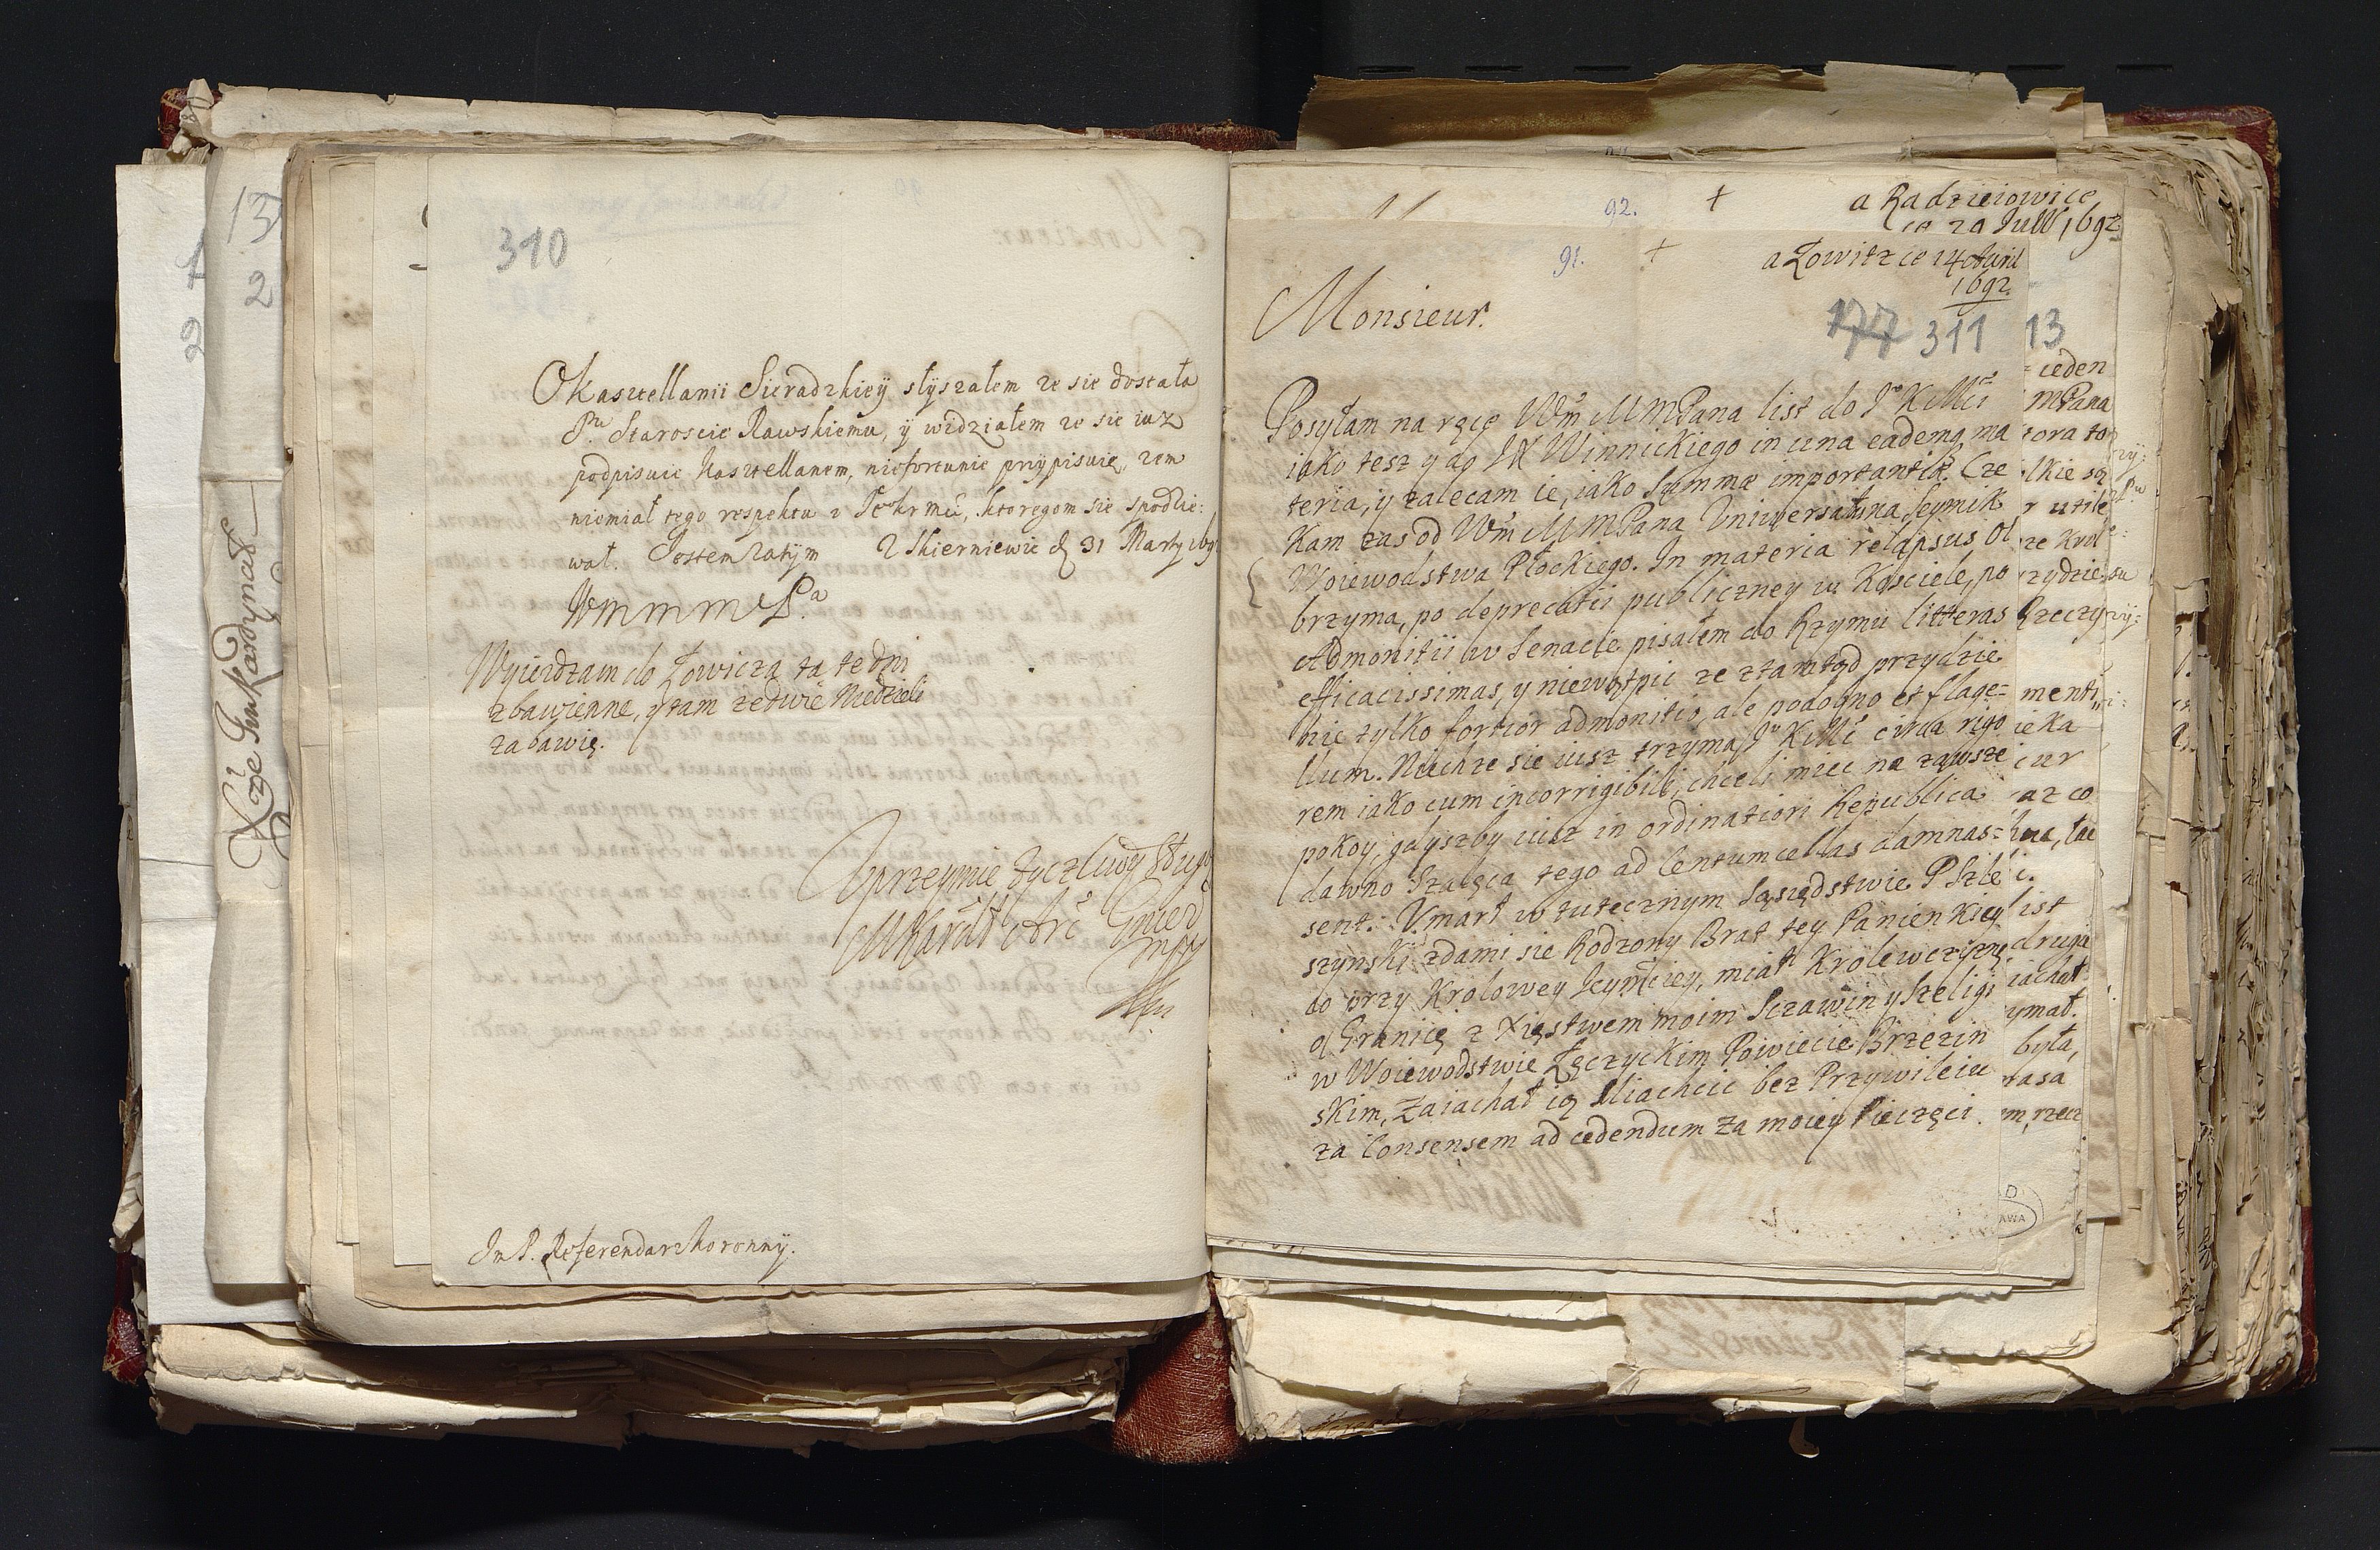 13
2
1
2
Xże Jmć Kardynał
310
O Kasztellanii Sieradzkiey słyszałem ze sie dostała
P.wi Staroscie Rawskiemu, ÿ widziałem ze sie iuz
podpisuie Kasztellanem, niefortunie przÿpisuię, zem
niemiał tego respektu u Krolmci, ktoregom sie spodzie:
wał. Jestem zatÿm Z Skierniewic d 31 Marty 169
Wm m m Pa
Wyierdzam do Łowicza ta te dni
zbawienne, y tam ze dwie Niedzieli
zabawię.
Uprzeymie zyczliwy Sługa
MKardł Arc Gniez
mpp
Jm P. Referendarz Koronnÿ.
92. + a Radzieiowice
ce 29 Juill 1692
91. + a Łowitz ce 14 Avril
1692.
177 311 13
Monsieur.
Posyłam na ręce Wm MMPana list do Jo KMći
iako tesz y do JX Winnickiego in una eademq ma
teria, y zalecam ie, iako Summæ importantiæ. Cze
Kam zas od Wm MMPana Uniwersału na Seymik
Woiewodstwa Płockiego. In materia relapsus Ol
brzyma, po deprecatii publiczney w Kosciele, po
Admonitii w Senacie pisałem do Rzymu litteras
efficacissimas, y niewątpię ze ztamtąd przydzie
nie tylko fortior admonitio, ale podobno et flage=
llum. Niechze sie iusz trzyma Jo KMć circa rigo
rem iako cum incorrigibili, chceli miec na zawsze
pokoy, gdyszby iusz in ordinatiori Republica
dawno Szalęca tego ad Centumcellas damnas=
sent. Vmarł w tutecznym Sąsiędstwie P Szle
szynski zdami sie Rodzony Brat tey Panienkiey
co przy Krolowey Jeymciey, miał Krolewczyznę
o Granicę z Xięstwem moim Sczawin y Szeligi
w Woiewodstwie Łęczyckim Powiecie Brzezin
skim, Zaiachał ią Sliachcic bez Przywileiu
za Consensem ad cedendum za moiey Pieczęci.
ceden
MPana
tora to
lkie są
r utile
ze Krol
rzydzie
Rzeczy
menti
ieka
cur
az co
list
drugie
iachał
ymał.
była,
rasa
m, rzecz